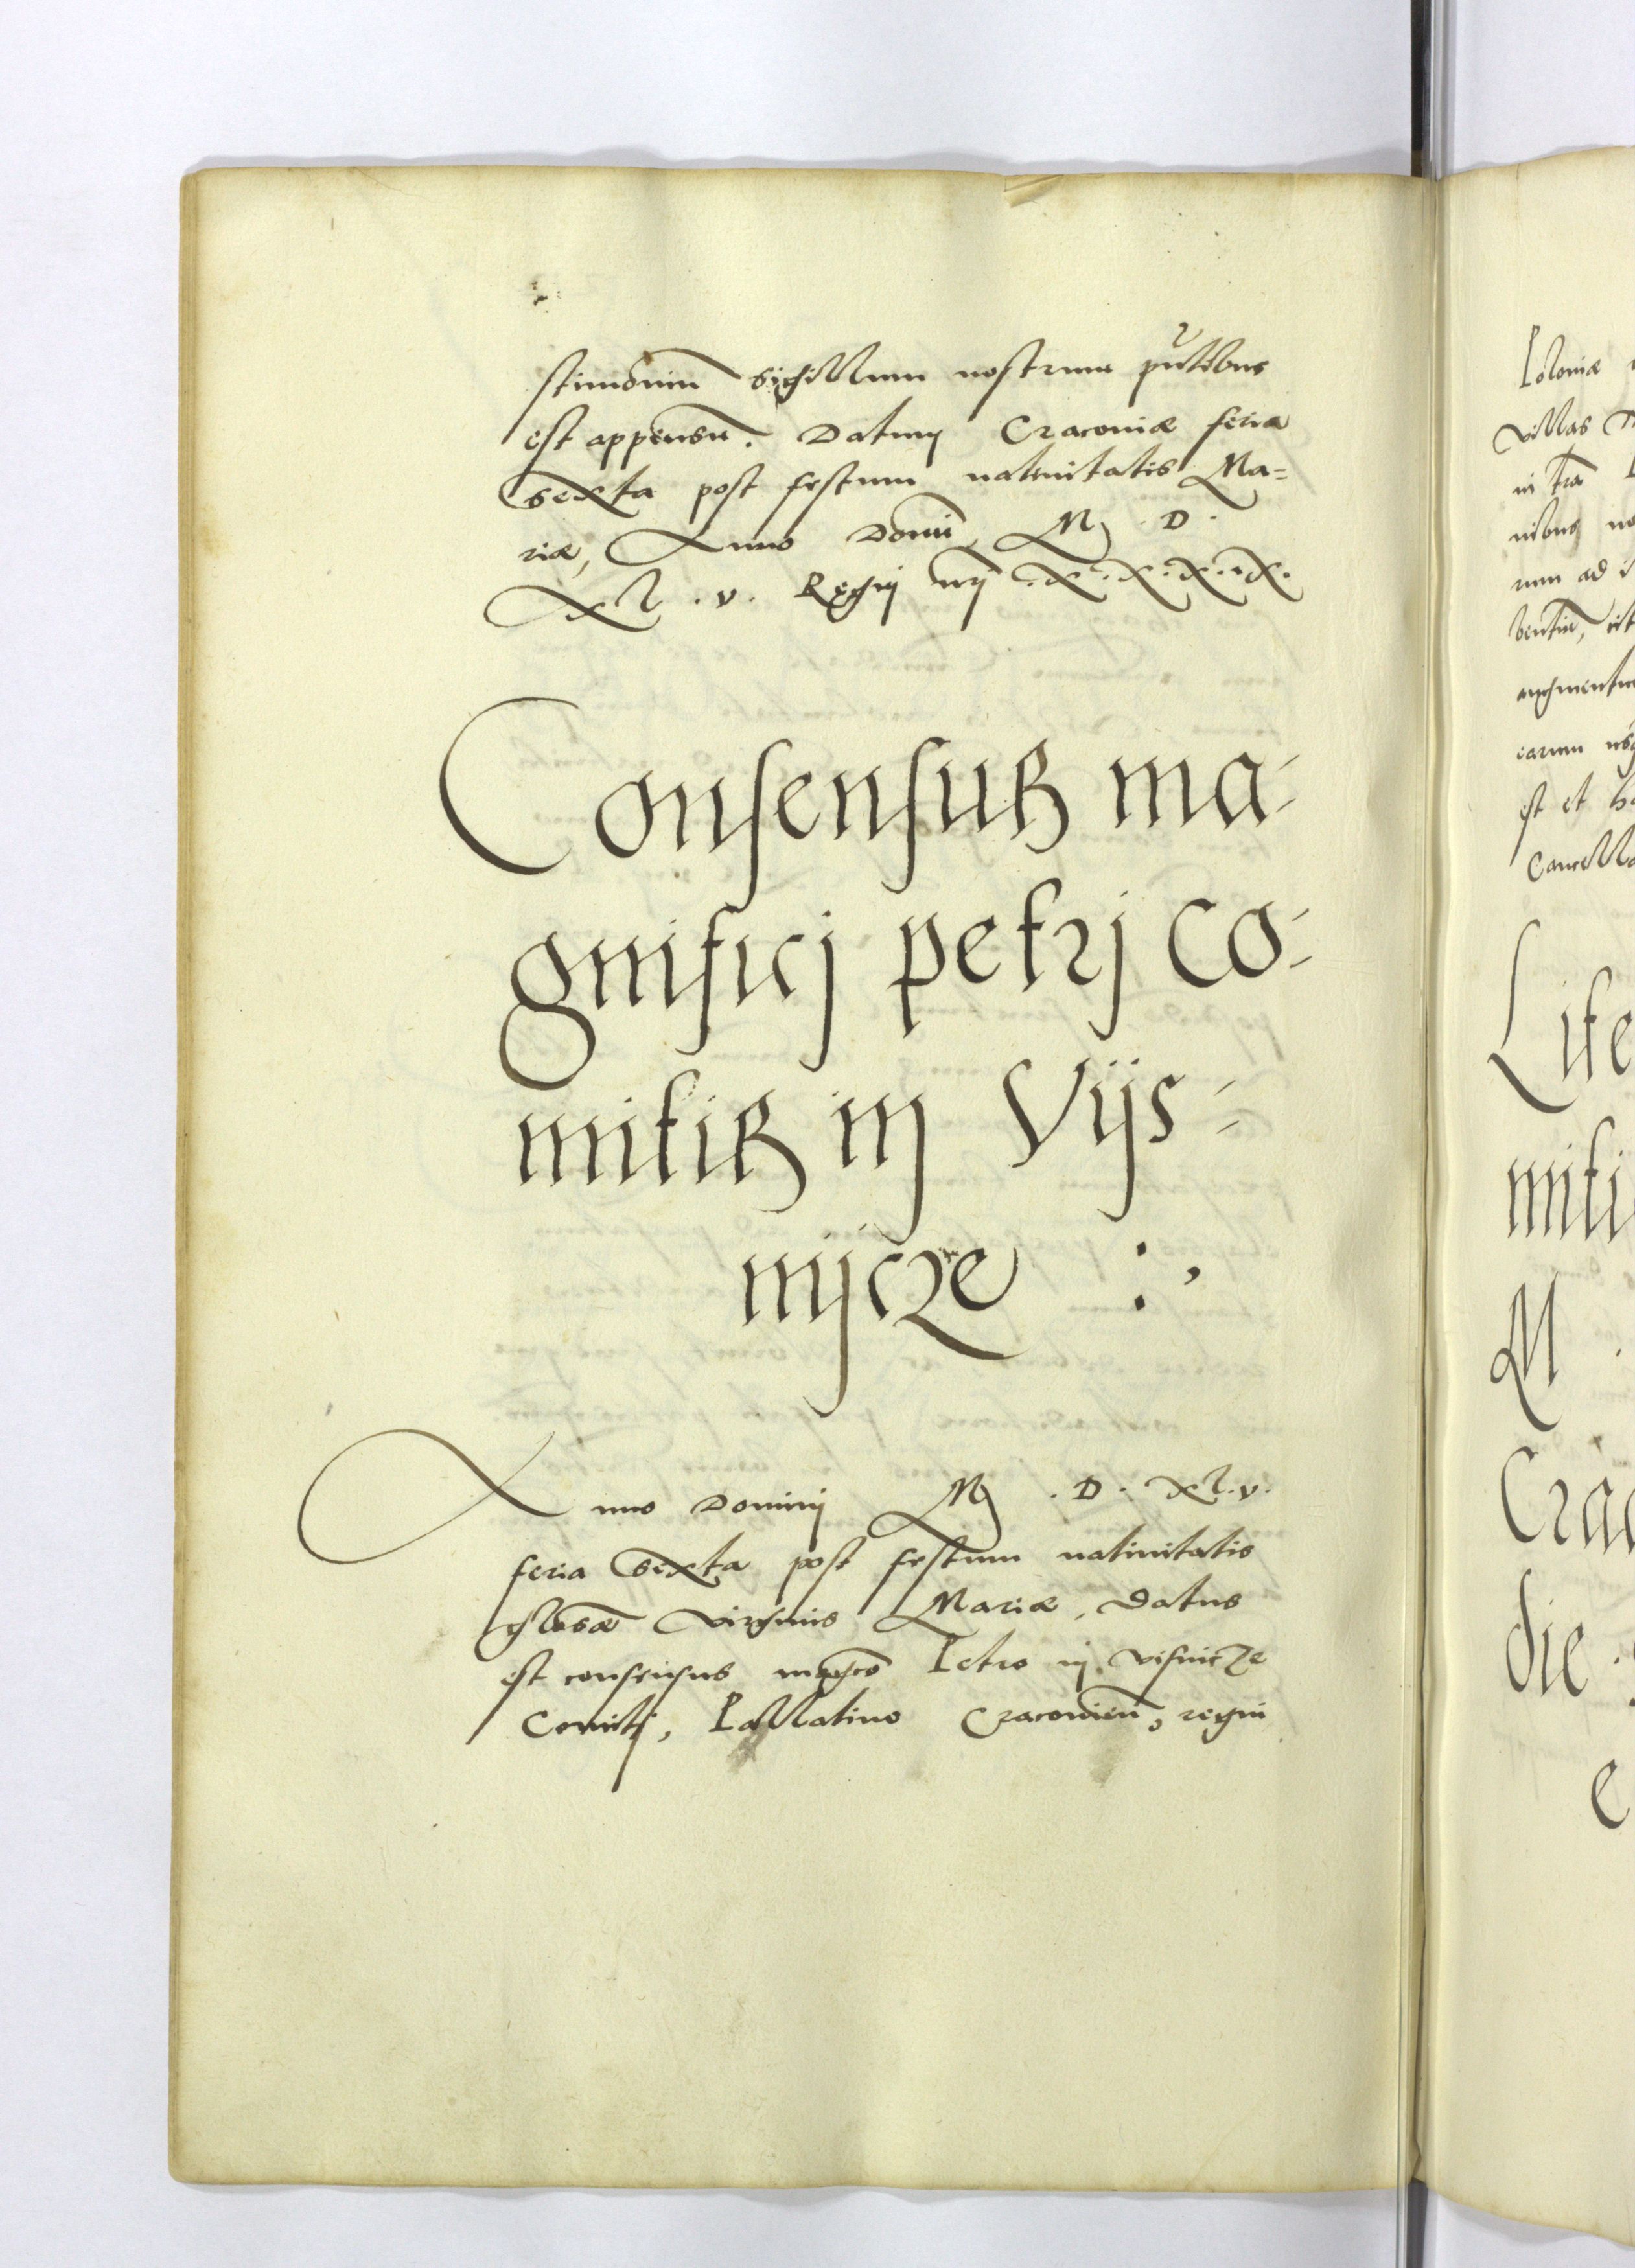 stimoniũ sigillum nostrum pñtibus
est appensũ. Datum Cracoviæ feria
sexta post festum nativitatis Ma=
riæ, Anno Domĩ M . D .
XL . v . Regni nrĩ .X.X.X.X.
Consensus ma-
gnifici petrj co-
mitis in Vijs=
nijcze :,
Anno Dominj M . D . XL.v.
feria sexta post festum nativitatis
gl̃osæ virginis Mariæ, datus
est consensus mag̃co Petro in Visnicze
Comitj, Pallatino Cracovieñ, regni
Poloniæ
villas
in t̃ra
nibus
rum ad
bentiũ,
augmentu
earum
est et
Cancella
Lite
miti
M .
Crac
die .
e